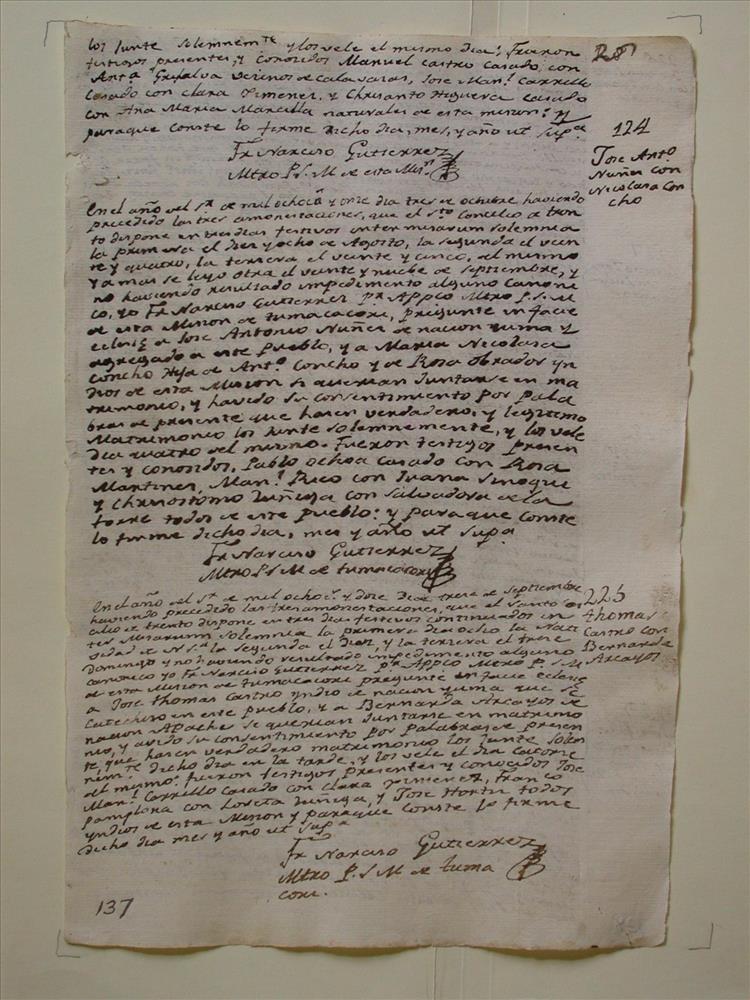 los Junte solemnem.te y los vele el mismo dia: Fueron
testigos presentes, y Conosidos Manuel Castro Casado, con
Ant.a Grijalva vecinos de Calavasas, Jose Man.l Carrillo
Casado con Clara Jimenez, y Chrisanto Higuera casado
con Ana Maria Mansilla naturales de esta mision: y
paraque conste lo firme dicho dia, mes, y año ut sup.a
Fr. Narciso Gutierrez
Mtro P. S. M de esta Mis.n
124
Jose Ant.o
Nuñez con
Nicolasa Con
cho
En el año del S.r de mil ochoci.s y onse dia tres de octubre haviendo
precedido las tres amonestaciones, que el s.to Concilio de tren
to dispone en tres dias festivos inter misarum solemnia
la primera el dies y ocho de Agosto, la segunda el vein
te y quatro, la tercera el veinte y cinco, del mismo
y a mas se leyo otra el veinte y nuebe de septiembre, y
no haviendo resultado impedimento alguno canoni
co, yo Fr. Narciso Gutierrez Pr. Appco Mtro P. S. M
de esta Mision de tumacacori, pregunte in facie
eclesie a Jose Antonio Nuñez de nacion yuma y
agregado a este Pueblo, y a Maria Nicolasa
Concho Hija de Ant.o Concho y de Rosa Obrador yn
dios de esta Mision si querian Juntarse en ma
trimonio, y havido su consentimiento por pala
bras de presente que hasen verdadero, y legitimo
Matrimonio los Junte solemnemente, y los vele
dia quatro del mismo. Fueron testigos presen
tes y conosidos, Pablo ochoa casado con Rosa
Martinez, Man.l Rico con Juana Sinoque
y Chrisostomo Zuñiga con Salvadora de la
torre todos de este pueblo: y para que conste
lo firme dicho dia, mes y año ut sup.a
Fr Narciso Gutierrez
Mtro P. S. M de tumacacori
225
thomas
Castro con
Bernarda
Arcayos
En el año del S.r de mil ochoc.s y dose dia trese de septiembre
haviendo precedido las tres amonestaciones, que el Santo Con
cilio de trento dispone en tres dias festivos continuados in
ter Misarum solemnia la primera dia ocho la Nati
vidad de N. S.ra la segunda el dies, y la tercera el trese
Domingo y no haviendo resultado impedimento alguno
canonico yo Fr Narciso Gutierrez Pr. Appco Mtro P. S. M
de esta Mision de tumacacori pregunte in facie eclesie
a Jose thomas Castro yndio de nacion yuma que se
Catechiso en este pueblo, y a Bernarda Arcayos de
nacion Apache se querian Juntarse en matrimo
nio, y avido su consentimiento por palabras de presen
te, que hasen verdadero matrimonio los Junte solem
nem.te dicho dia en la tarde, y los vele el dia catorse
del mismo: fueron testigos presentes y conocidos Jose
Man.l Carrillo casado con Clara Jimenez, Franco
Pamplona con Loreta Zuñiga, y Jose Hortiz todos
yndios de esta Mision y paraque conste lo firme
dicho dia mes y año ut sup.a
Fr Narciso Gutierrez
Mtro P. S M de tuma
cori.
137